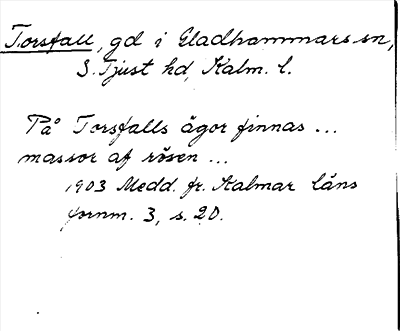 Torsfall, gd i Gladhammars sn,
S. Tjust hd, Kalm. l.
På Torsfalls ägor finnas ...
massor af rösen ...
1903 Medd. fr. Kalmar läns
fornm. 3, s. 20.